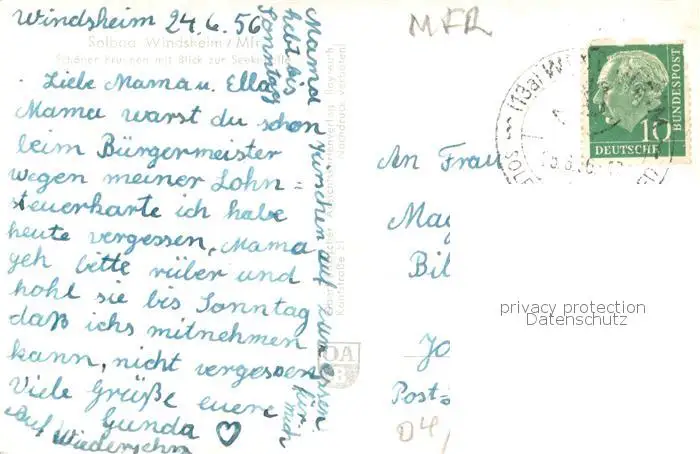 Windsheim 24.6.56
Solbad Windsheim / Mfr.
Schöner Brunnen mit Blick zur Seekapelle
Liebe Mama u. Ella
Mama warst du schon
beim Bürgermeister
wegen meiner Lohn=
steuerkarte ich habe
heute vergessen, Mama
geh bitte rüber und
hohl sie bis Sonntag
daß ichs mitnehmen
kann, nicht vergessen
Viele Grüße eure
Gunda
Auf Wiedersehn
Mama
hebt bis
Sonntag
auf zum essen
für mich
Bayreuth
Nachdruck verboten
OA
B
MFR
(13a) W
SOL
10
DEUTSCHE
BUNDESPOST
An Frau
Mag
Bil
privacy protection
Datenschutz
Jo
Post=
04/